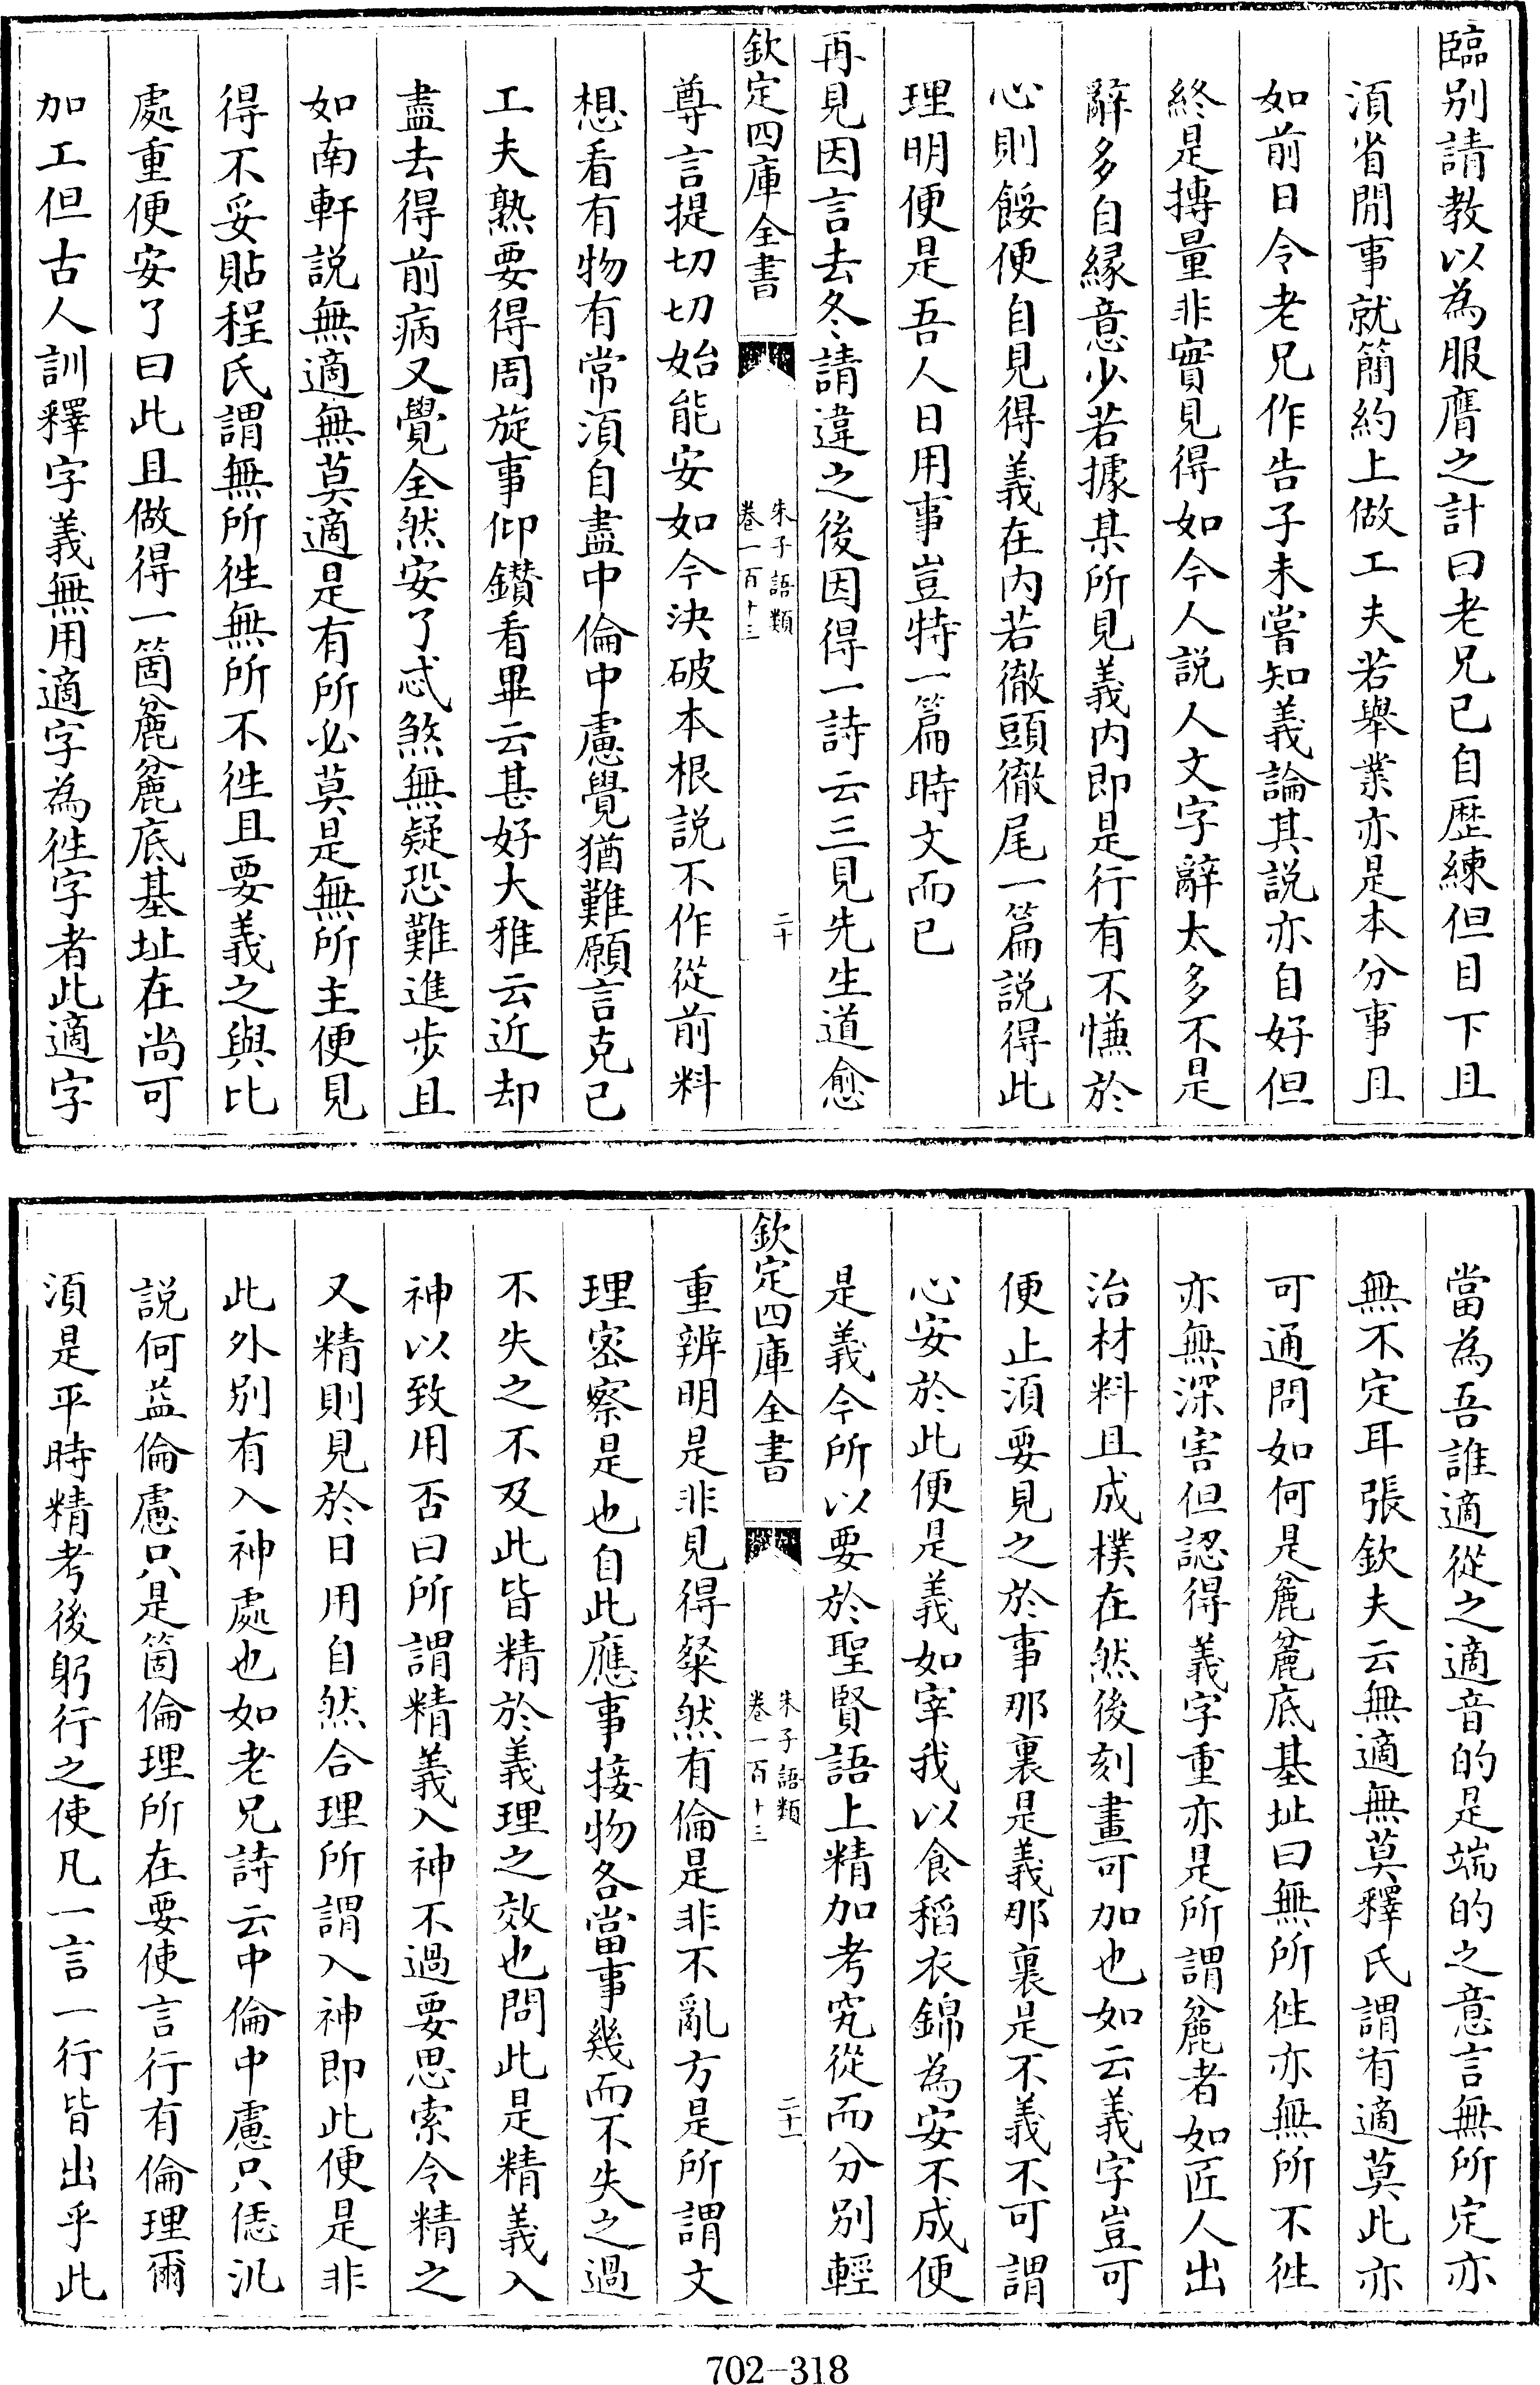 臨别請教以為服膺之計曰老兄已自歴練但目下且
湏省閒事就簡約上做工夫若舉業亦是本分事且
如前日令老兄作告子未嘗知義論其説亦自好但
終是摶量非實見得如今人説人文字辭太多不是
辭多自縁意少若據某所見義内即是行有不慊於
心則餒便自見得義在内若徹頭徹尾一篇説得此
理明便是吾人日用事豈特一篇時文而已
再見因言去冬請違之後因得一詩云三見先生道愈
欽定四庫全書
朱子語類
卷一百十三
二十
尊言提切切始能安如今決破本根説不作從前料
想看有物有常湏自盡中倫中慮覺猶難願言克已
工夫熟要得周旋事仰鑽看畢云甚好大雅云近却
盡去得前病又覺全然安了忒煞無疑恐難進步且
如南軒説無適無莫適是有所必莫是無所主便見
得不妥貼程氏謂無所徃無所不徃且要義之與比
處重便安了曰此且做得一箇麄麄底基址在尚可
加工但古人訓釋字義無用適字為徃字者此適字
當為吾誰適從之適音的是端的之意言無所定亦
無不定耳張欽夫云無適無莫釋氏謂有適莫此亦
可通問如何是麄麄底基址曰無所徃亦無所不徃
亦無深害但認得義字重亦是所謂麄者如匠人出
治材料且成樸在然後刻畫可加也如云義字豈可
便止湏要見之於事那裏是義那裏是不義不可謂
心安於此便是義如宰我以食稻衣錦為安不成便
是義今所以要於聖賢語上精加考究從而分别輕
欽定四庫全書
朱子語類
卷一百十三
二十一
重辨明是非見得粲然有倫是非不亂方是所謂文
理宻察是也自此應事接物各當事幾而不失之過
不失之不及此皆精於義理之效也問此是精義入
神以致用否曰所謂精義入神不過要思索令精之
又精則見於日用自然合理所謂入神即此便是非
此外别有入神處也如老兄詩云中倫中慮只恁汎
説何益倫慮只是箇倫理所在要使言行有倫理爾
湏是平時精考後躬行之使凡一言一行皆出乎此
702-318